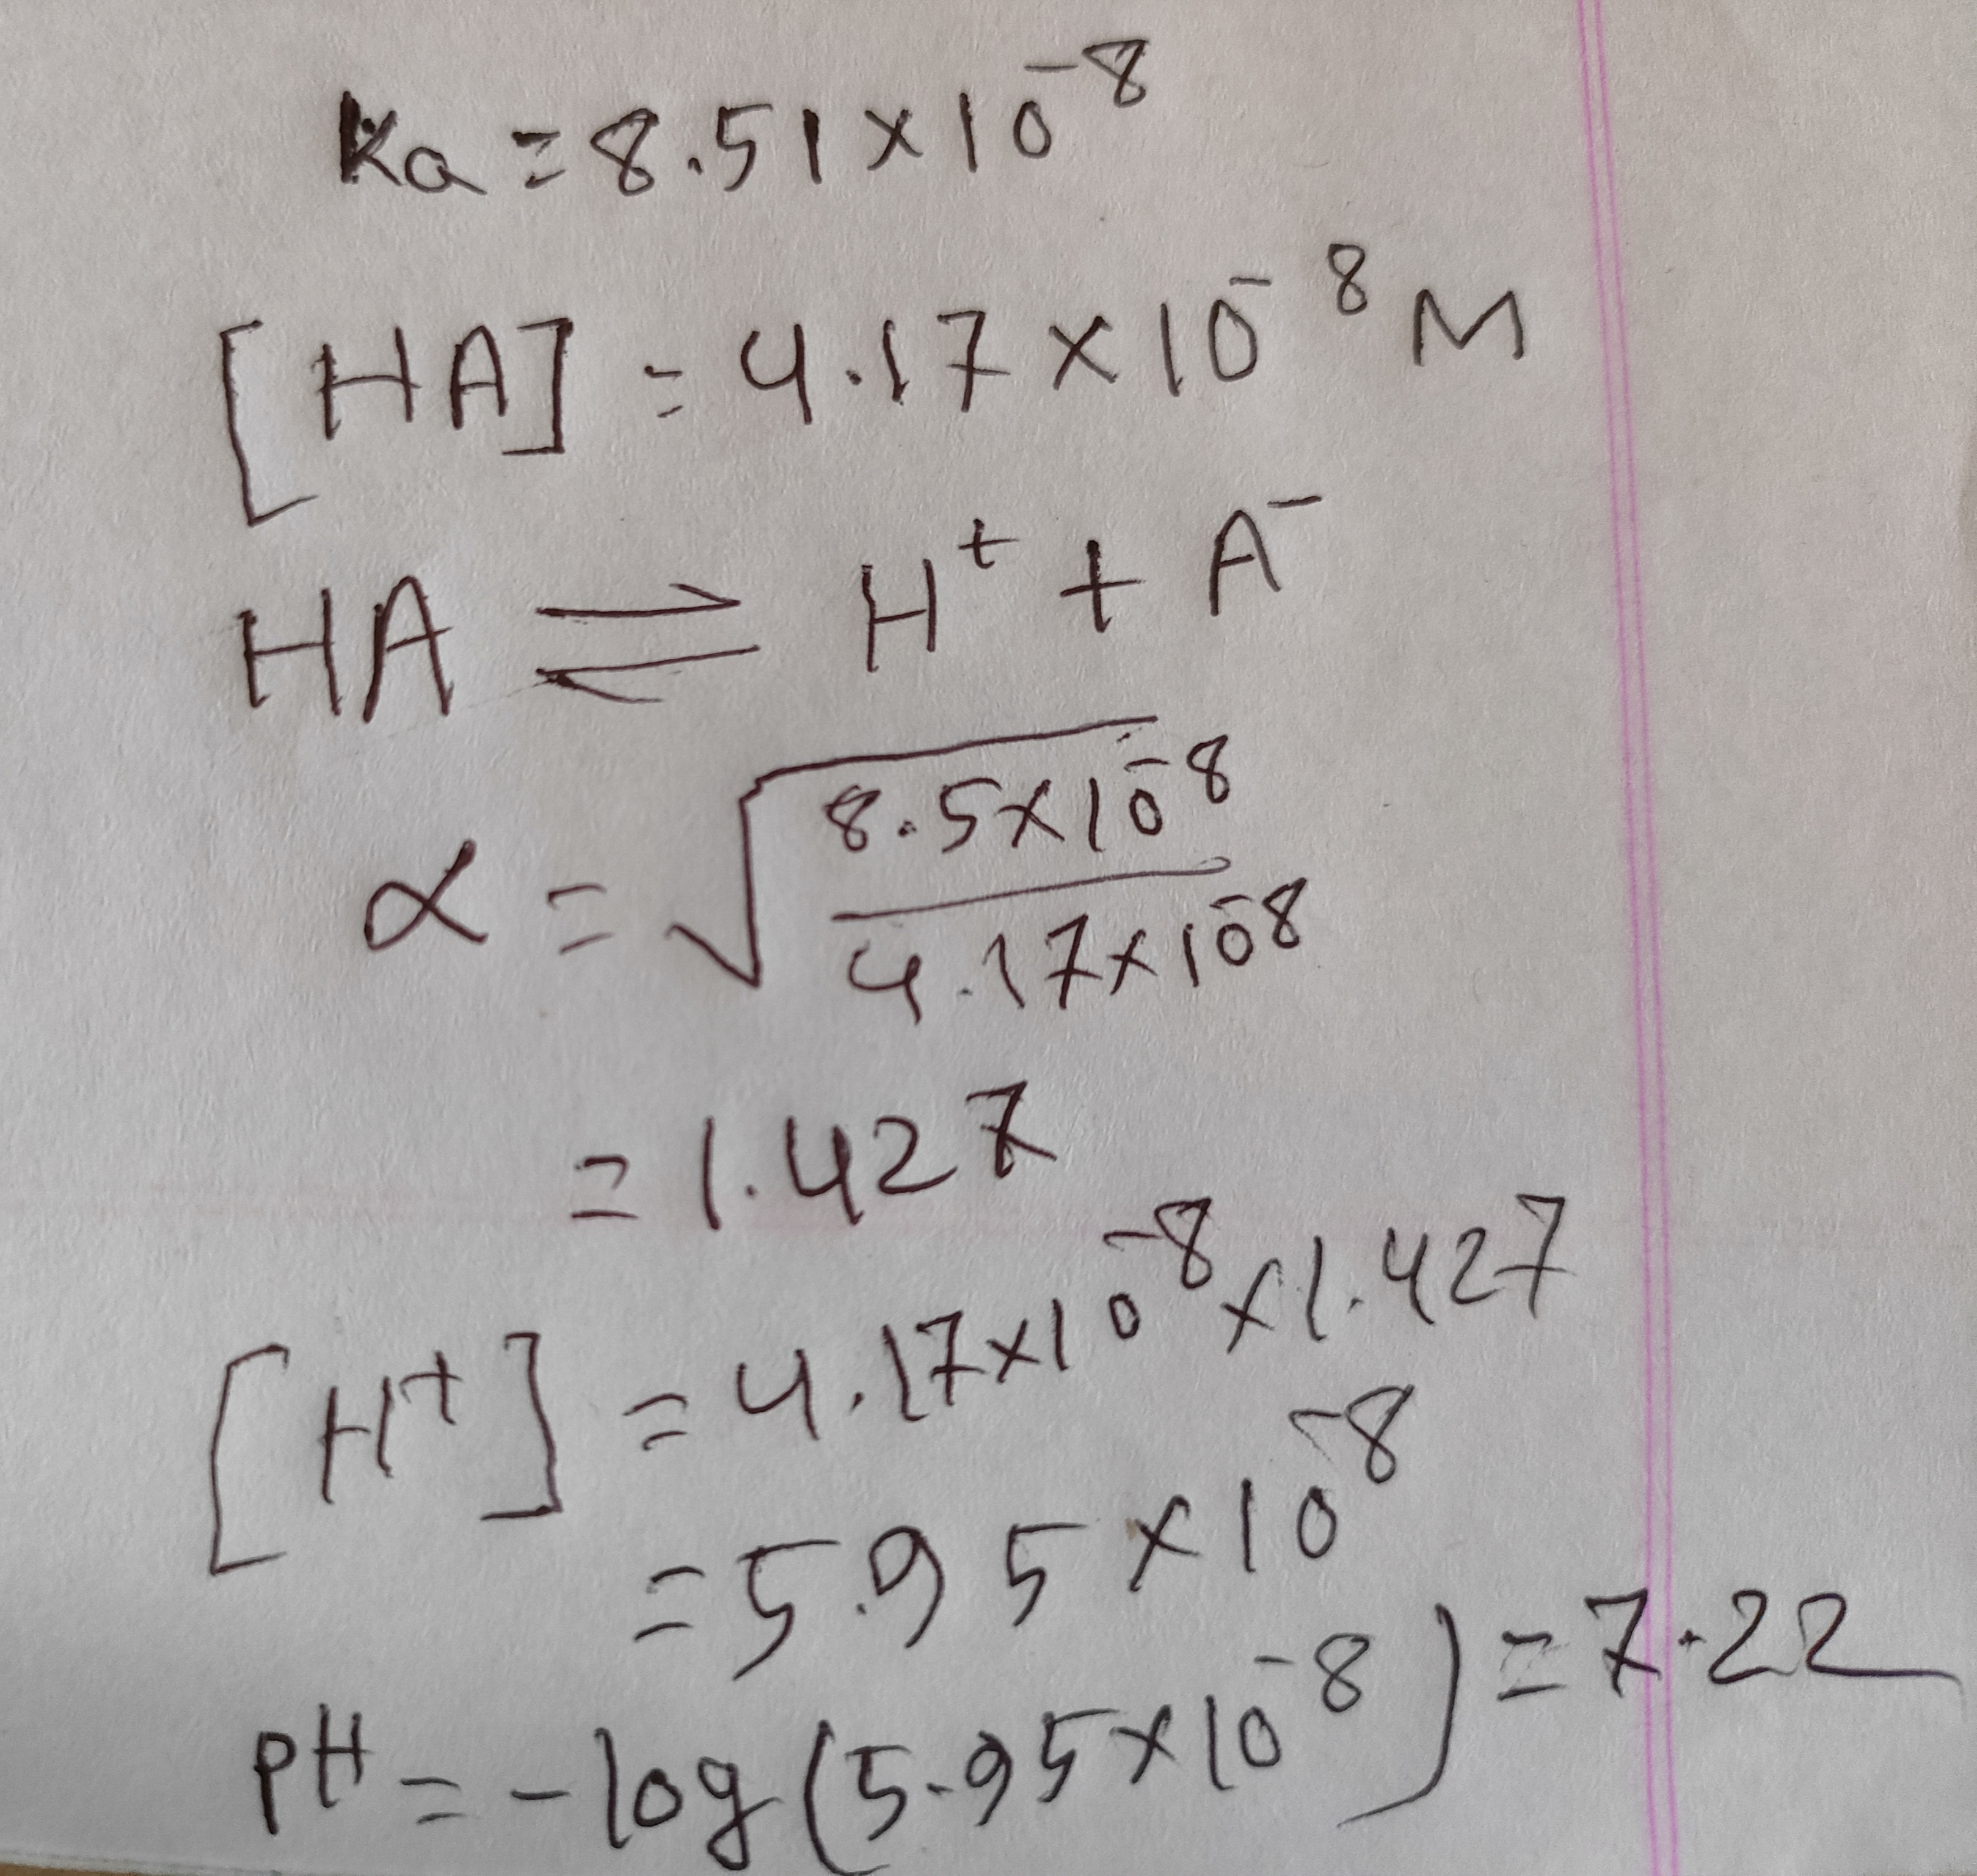 Ka = 8.51 × 10⁻⁸
[HA] = 4.17 × 10⁻⁸ M
HA ⇌ H⁺ + A⁻
α = √(8.5×10⁻⁸ / 4.17×10⁻⁸)
= 1.427
[H⁺] = 4.17×10⁻⁸ × 1.427
= 5.95 × 10⁻⁸
PH = -log(5.95×10⁻⁸) = 7.22